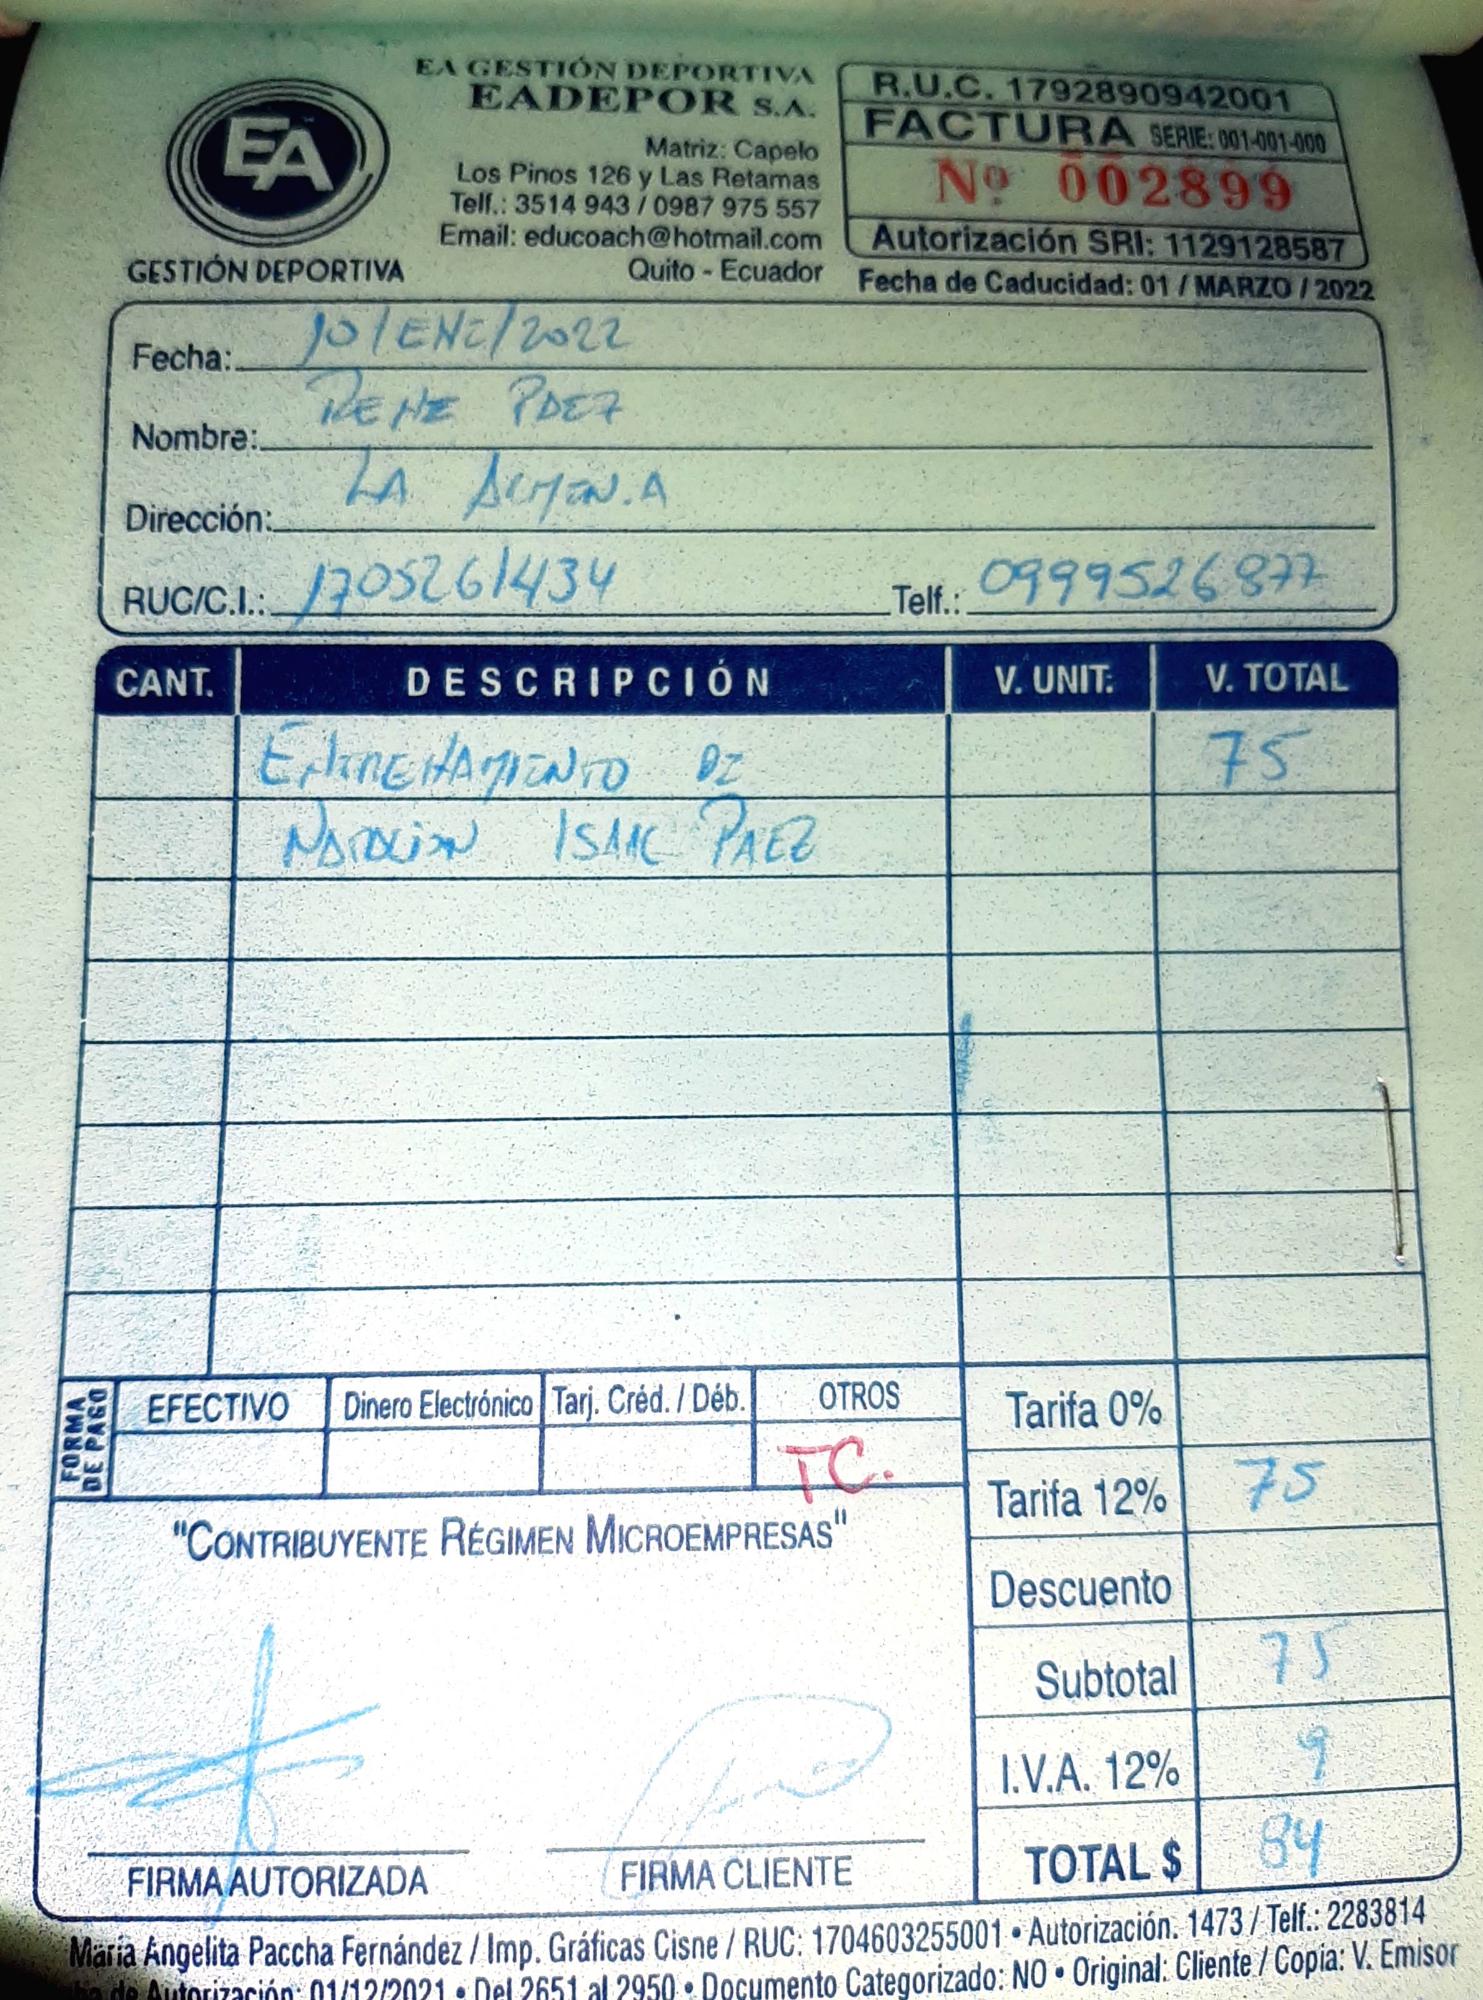 EA GESTIÓN DEPORTIVA
EADEPOR S.A.
EA
GESTIÓN DEPORTIVA
Matriz: Capelo
Los Pinos 126 y Las Retamas
Telf.: 3514 943 / 0987 975 557
Email: educoach@hotmail.com
Quito - Ecuador
R.U.C. 1792890942001
FACTURA SERIE: 001-001-000
Nº 002899
Autorización SRI: 1129128587
Fecha de Caducidad: 01 / MARZO / 2022
Fecha: 10/ENE/2022
Nombre: RENE PAEZ
Dirección: LA
RUC/C.I.: 1705261434 Telf.: 0999526877
CANT. DESCRIPCIÓN V. UNIT. V. TOTAL
ENTRENAMIENTO DE 75
NATACIÓN ISAAC PAEZ
FORMA DE PAGO
EFECTIVO Dinero Electrónico Tarj. Créd. / Déb. OTROS
TC.
Tarifa 0%
Tarifa 12% 75
Descuento
Subtotal 75
I.V.A. 12% 9
TOTAL $ 84
"CONTRIBUYENTE RÉGIMEN MICROEMPRESAS"
FIRMA AUTORIZADA FIRMA CLIENTE
María Angelita Paccha Fernández / Imp. Gráficas Cisne / RUC: 1704603255001 • Autorización: 1473 / Telf.: 2283814
de Autorización: 01/12/2021 • Del 2651 al 2950 • Documento Categorizado: NO • Original: Cliente / Copia: V. Emisor